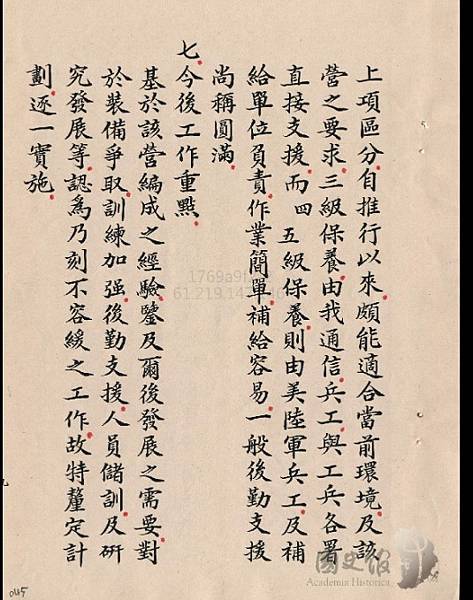 上項區分,自推行以來,頗能適合當前環境,及該
營之要求,三級保養,由我通信,兵工,與工兵各署
直接支援,而四 五級保養,則由美陸軍兵工,及補
給單位負責,作業簡單,補給容易,一般後勤支援
尚稱圓滿.
七.今後工作重點.
基於該營編成之經驗,鑒及爾後發展之需要,對
於裝備爭取,訓練加强,後勤支援,人員儲訓,及研
究發展等,認為乃刻不容緩之工作,故特釐定計
劃,逐一實施.
045
國史館
Academia Historica